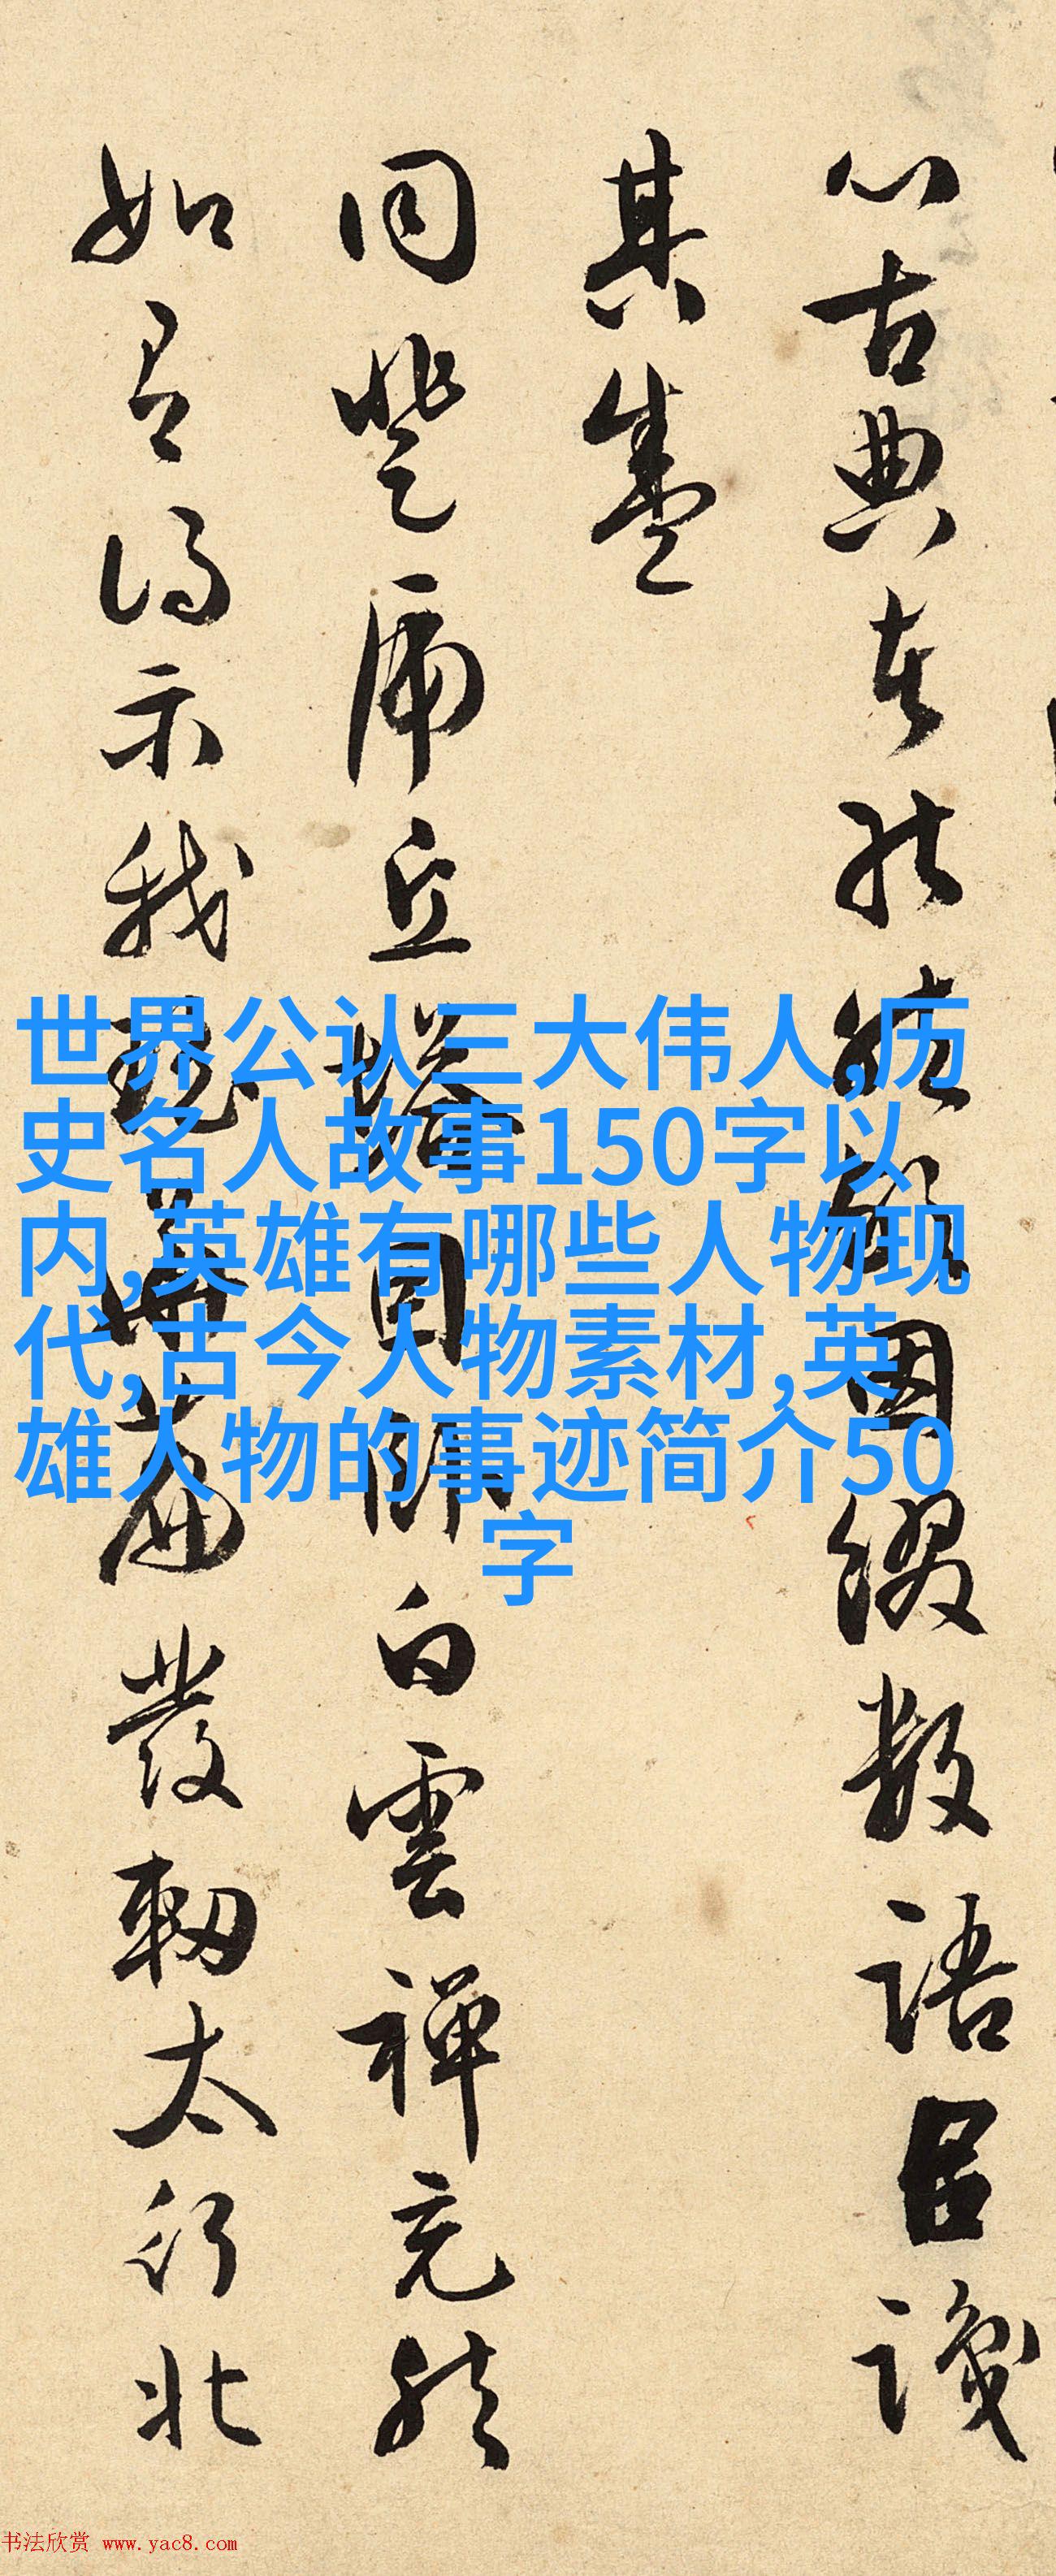 心古典至於精詣因綴數語呂識
其盛
同登虎丘塔因師白雲禪充然
如有得示我
發軔太行北
世界公认三大伟人,历
史名人故事150字以
内,英雄有哪些人物现
代,古今人物素材,英
雄人物的事迹简介50
字
书法欣赏 www.yac8.com